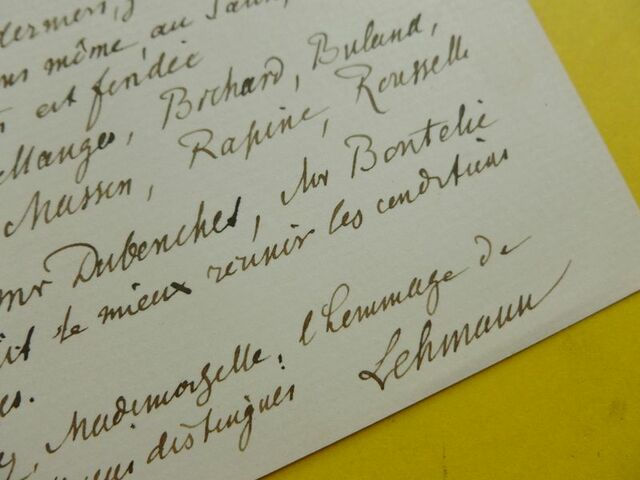 même, au
est fondée
Brchard, Buland,
Massen, Rapine, Rousselle
mr Dubenches, Mr Bontelie
le mieux réunir les conditions
Mademoiselle, l'hommage de
distingués Lehmann